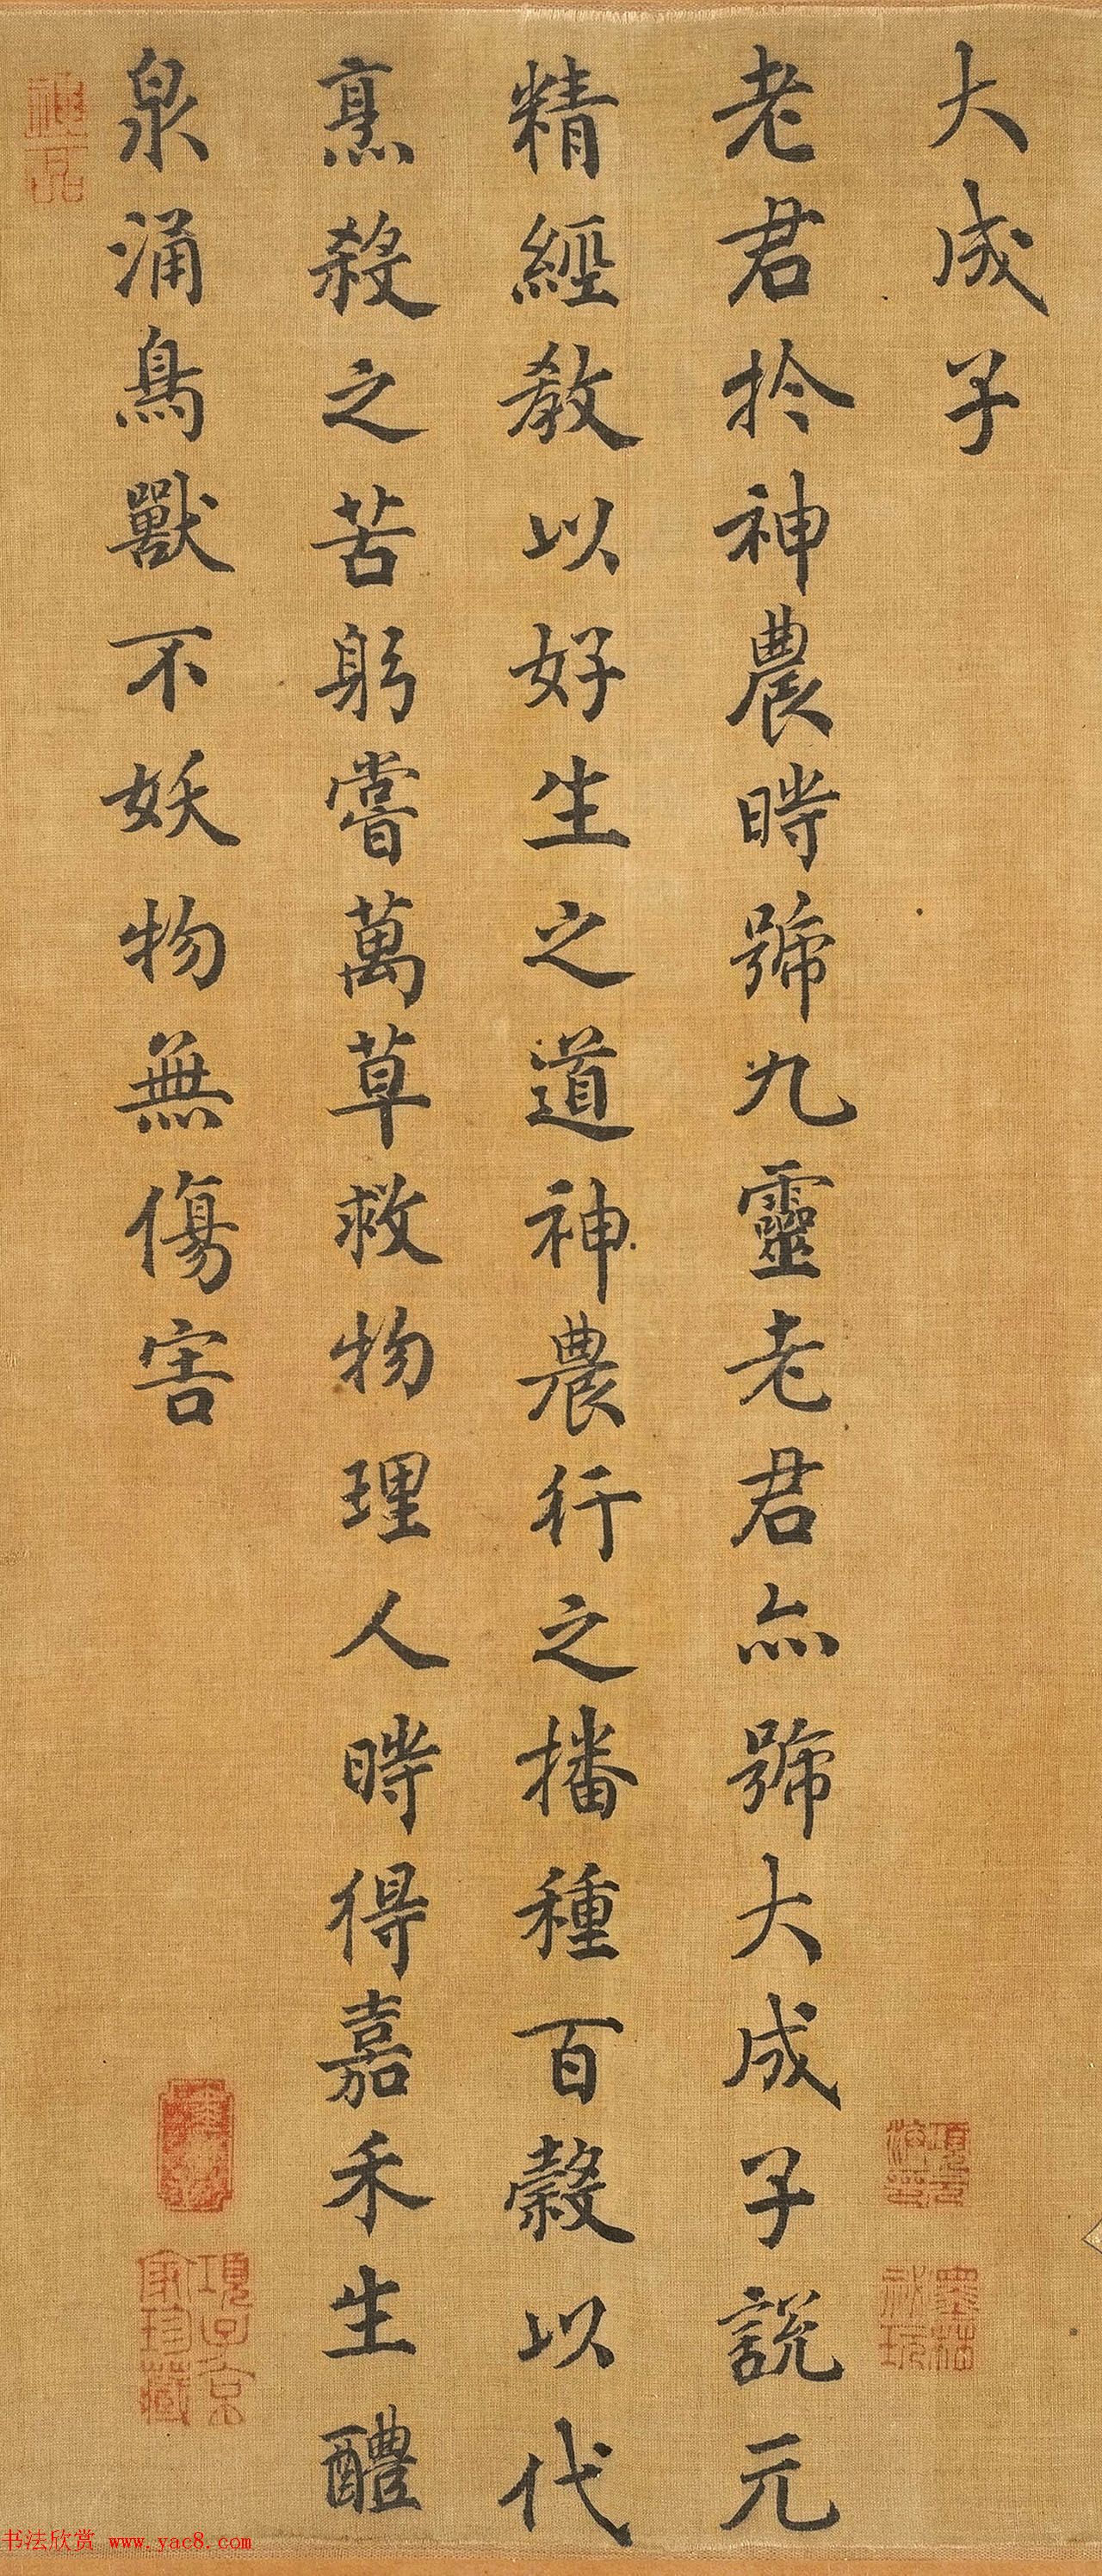 大成子
老君於神農時號九靈老君亦號大成子說元
精經教以好生之道神農行之播種百穀以代
烹殺之苦躬嘗萬草救物理人時得嘉禾生醴
泉涌鳥獸不妖物無傷害
神品
項元汴印
墨林祕玩
項子京家珍藏
书法欣赏 www.yac8.com